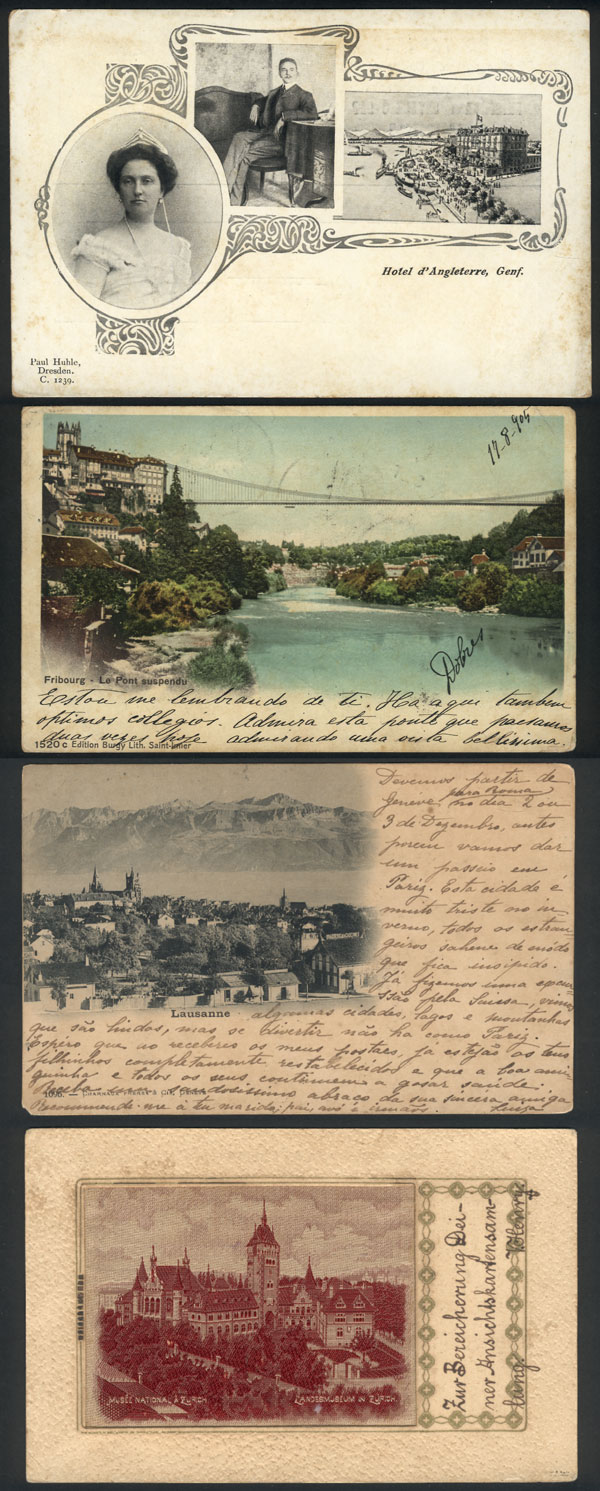 Hotel d'Angleterre, Genf.
Paul Huhle,
Dresden.
C. 1239.
17-8-905
Dobres
Fribourg - Le Pont suspendu
Estou me lembrando de ti. Ha aqui tambem
optimos collegios. Admira esta ponte que passamos
duas vezes hoje admirando uma vista bellissima.
1520 c Edition Burgy Lith. Saint-Imier
Devemos partir de
Geneve para Roma no dia 2 ou
3 de Dezembro, antes
porem vamos dar
um passeio em
Pariz. Esta cidade é
muito triste no in-
verno, todos os estran-
geiros sahem de módo
que fica insipido.
Já fizemos uma
pela Suissa, vimos
Lausanne
algumas cidades, lagos e montanhas
que são lindas, mas se divertir não ha como Pariz.
Espero que ao receberes os meus postaes, ja estejão os teus
filhinhos completamente restabelecidos e que a boa
e todos os seus continuem a gosar saúde.
Receba um saudosissimo abraço da sua sincera amiga
1096. — Charnaux Frères & Cie, Genève
Recommende-me á teu marido, pai, avó e irmãos. Luiza
MUSÉE NATIONAL À ZURICH.
LANDESMUSEUM IN ZÜRICH.
Zur Bereicherung Dei-
ner Ansichtskartensam-
lung.